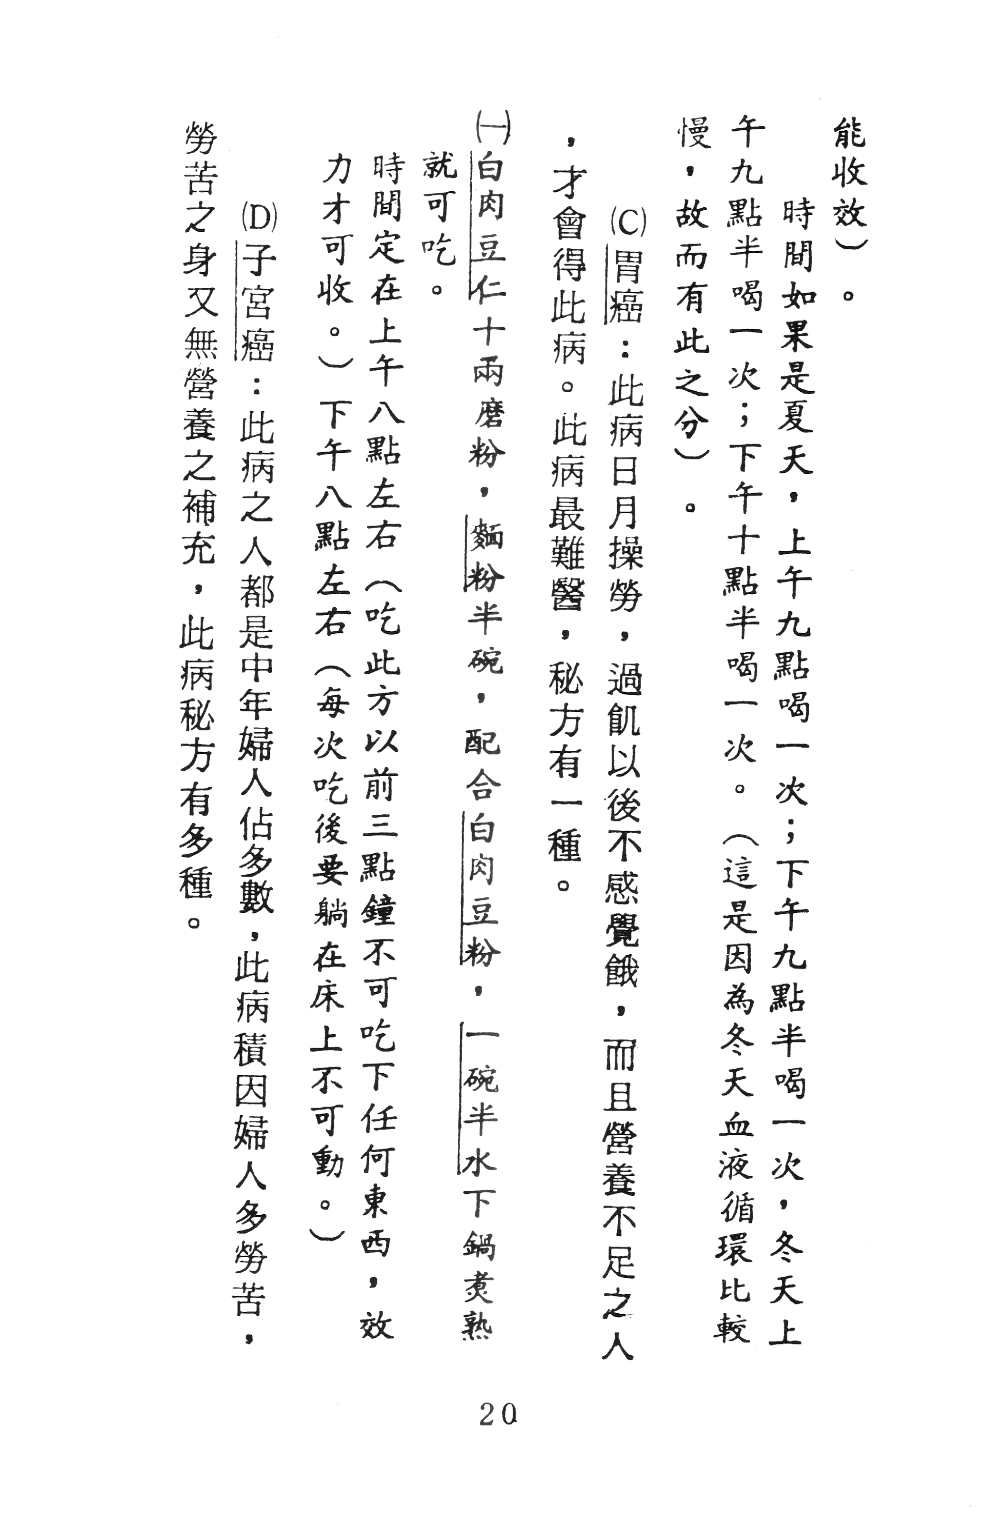 能收效）。
時間如果是夏天，上午九點喝一次；下午九點半喝一次，冬天上
午九點半喝一次；下午十點半喝一次。（這是因為冬天血液循環比較
慢，故而有此之分）。
(C)胃癌：此病日月操勞，過飢以後不感覺餓，而且營養不足之人
，才會得此病。此病最難醫，秘方有一種。
㈠白肉豆仁十兩磨粉，麵粉半碗，配合白肉豆粉，一碗半水下鍋煮熟
就可吃。
時間定在上午八點左右（吃此方以前三點鐘不可吃下任何東西，效
力才可收。）下午八點左右（每次吃後要躺在床上不可動。）
(D)子宮癌：此病之人都是中年婦人佔多數，此病積因婦人多勞苦，
勞苦之身又無營養之補充，此病秘方有多種。
20